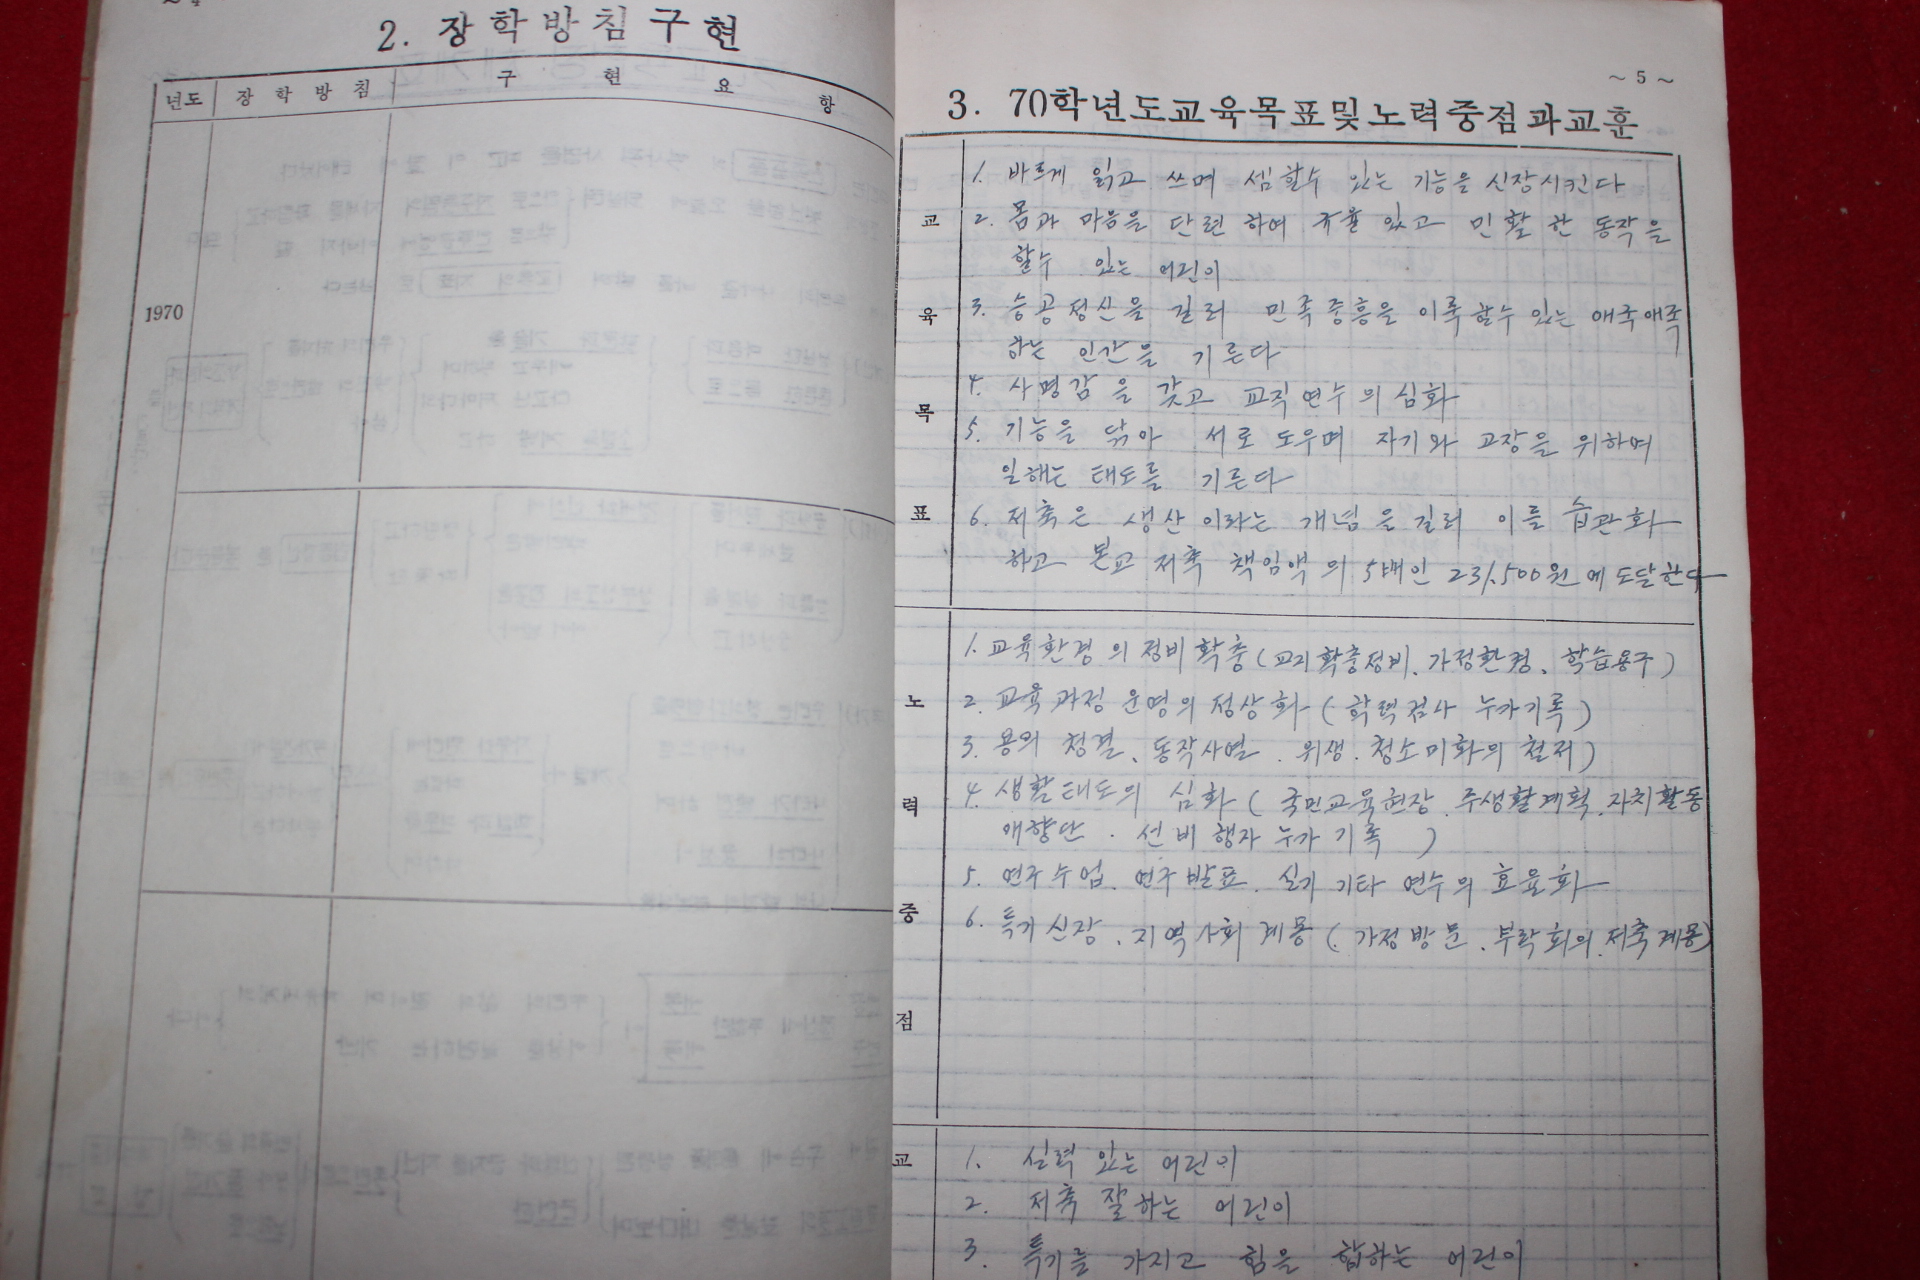 ~ 4
2. 장학방침구현
년도 장학방침 구현요항
1970
~ 5 ~
3. 70학년도교육목표및노력중점과교훈
교육목표
1. 바르게 읽고 쓰며 셈할수 있는 기능을 신장시킨다
2. 몸과 마음을 단련 하여 규율 있고 민활 한 동작을
할수 있는 어린이
3. 승공정신을 길러 민족중흥을 이룩할수 있는 애국애족
하는 인간을 기른다
4. 사명감을 갖고 교직연수의 심화
5. 기능을 닦아 서로 도우며 자기와 고장을 위하여
일하는 태도를 기른다
6. 저축은 생산이라는 개념을 길러 이를 습관화
하고 본교 저축 책임액의 5배인 231.500원에 도달한다
노력중점
1. 교육환경의 정비확충 (교지확충정비. 가정환경. 학습용구)
2. 교육과정 운영의 정상화 (학력검사 누가기록)
3. 용의 청결. 동작사열. 위생. 청소미화의 철저)
4. 생활태도의 심화 ( 국민교육헌장. 주생활계획. 자치활동
애향단. 선비 행자 누가 기록 )
5. 연구수업. 연구발표. 실기 기타 연수의 효율화
6. 특기신장. 지역사회 계몽 (. 가정방문. 부락회의. 저축계몽)
교
1. 실력 있는 어린이
2. 저축 잘하는 어린이
3. 특기를 가지고 힘을 합하는 어린이